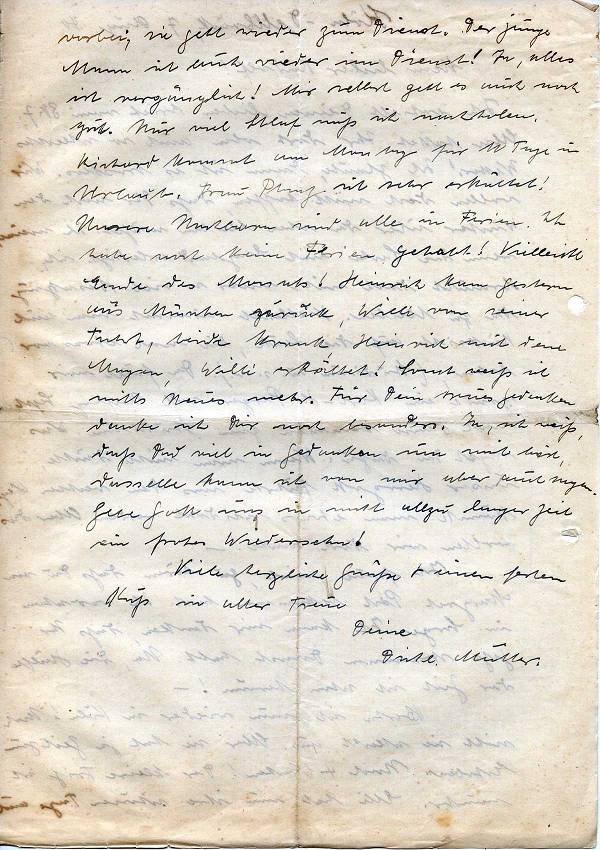 vorbei, sie geht wieder zum Dienst. Der junge
Mann ist auch wieder im Dienst! Ja, alles
ist vergänglich! Mir selbst geht es auch noch
gut. Nur viel Schlaf muß ich nachholen.
Richard kommt am Montag für 10 Tage in
Urlaub. Frau ist sehr erkältet!
Unsere Nachbarn sind alle in Ferien. Ich
habe noch keine Ferien gehabt! Vielleicht
Ende des Monats! Heinrich kam gestern
aus München zurück, Willi von seiner
Fahrt, beide krank, Heinrich mit dem
Magen, Willi erkältet! Sonst weiß ich
nichts Neues mehr. Für Dein treues Gedenken
danke ich Dir noch besonders. Ja, ich weiß,
daß Du viel in Gedanken um mich bist,
dasselbe kann ich von mir aber auch sagen.
Gebe Gott uns in nicht allzu langer Zeit
ein frohes Wiedersehn!
Viele herzliche Grüße + einen festen
Kuß in alter Treue
Deine
Mutter.